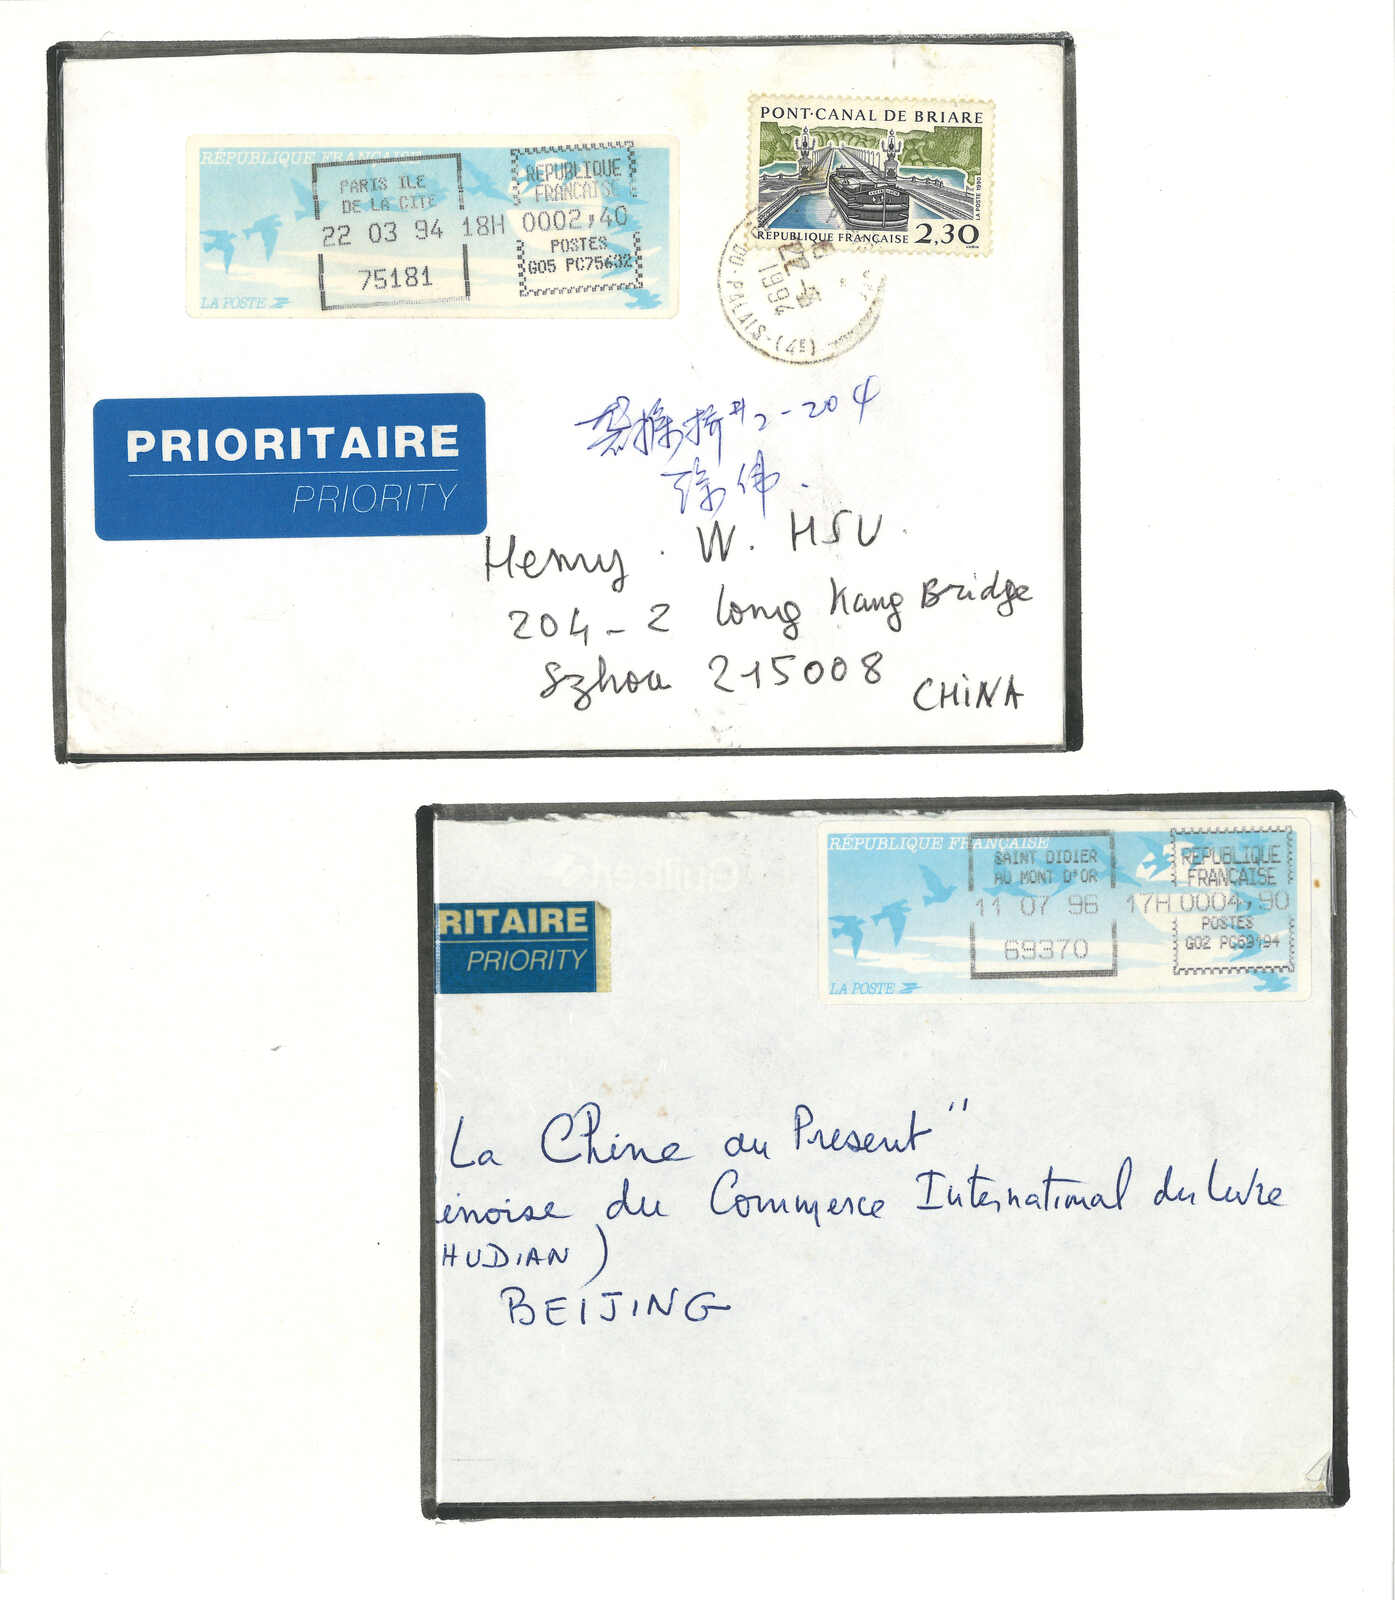 RÉPUBLIQUE FRANÇAISE
PARIS ILE
DE LA CITE
22 03 94 18H
75181
REPUBLIQUE
FRANCAISE
0002,40
POSTES
G05 PC75632
LA POSTE
PONT-CANAL DE BRIARE
LA POSTE 1990
RÉPUBLIQUE FRANÇAISE 2,30
PALAIS-(4E)
PRIORITAIRE
PRIORITY
2-204
徐伟.
Henry. W. HSU.
204-2 Long Kang Bridge
Szhou 215008
CHINA
RÉPUBLIQUE FRANÇAISE
SAINT DIDIER
AU MONT D'OR
11 07 96 17H
69370
REPUBLIQUE
FRANCAISE
0004,90
POSTES
G02 PC69494
LA POSTE
RITAIRE
PRIORITY
La Chine au Present"
inoise du Commerce International du Livre
HUDIAN)
BEIJING